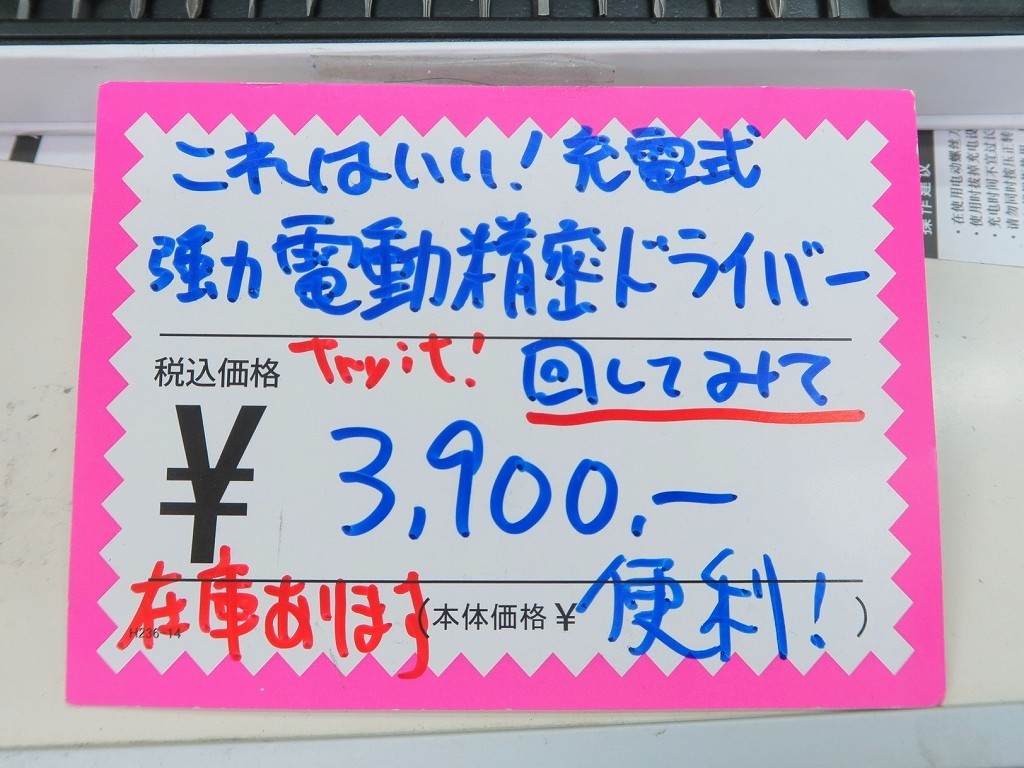 これはいい!充電式
強力電動精密ドライバー
税込価格 Try it! 回してみて
¥3,900.-
在庫あります(本体価格¥便利!)
H236-14
操作建议
·在使用电动螺丝刀
·使用时拔掉充电设
·充电时间不宜过长
·请勿同时按压正转